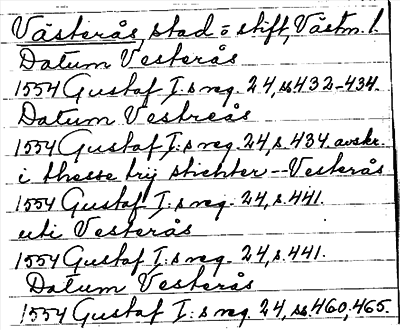 Västerås, stad o stift, Västm. l.
Datum Vesterås
1554 Gustaf I:s reg. 24, ss 432-434.
Datum Vestreås
1554 Gustaf I:s reg. 24, s. 434 avskr.
i thesse trij stichter -- Vesterås
1554 Gustaf I:s reg. 24, s. 441.
uti Vesterås
1554 Gustaf I:s reg. 24, s. 441.
Datum Vesterås
1554 Gustaf I:s reg. 24, ss 460, 465.